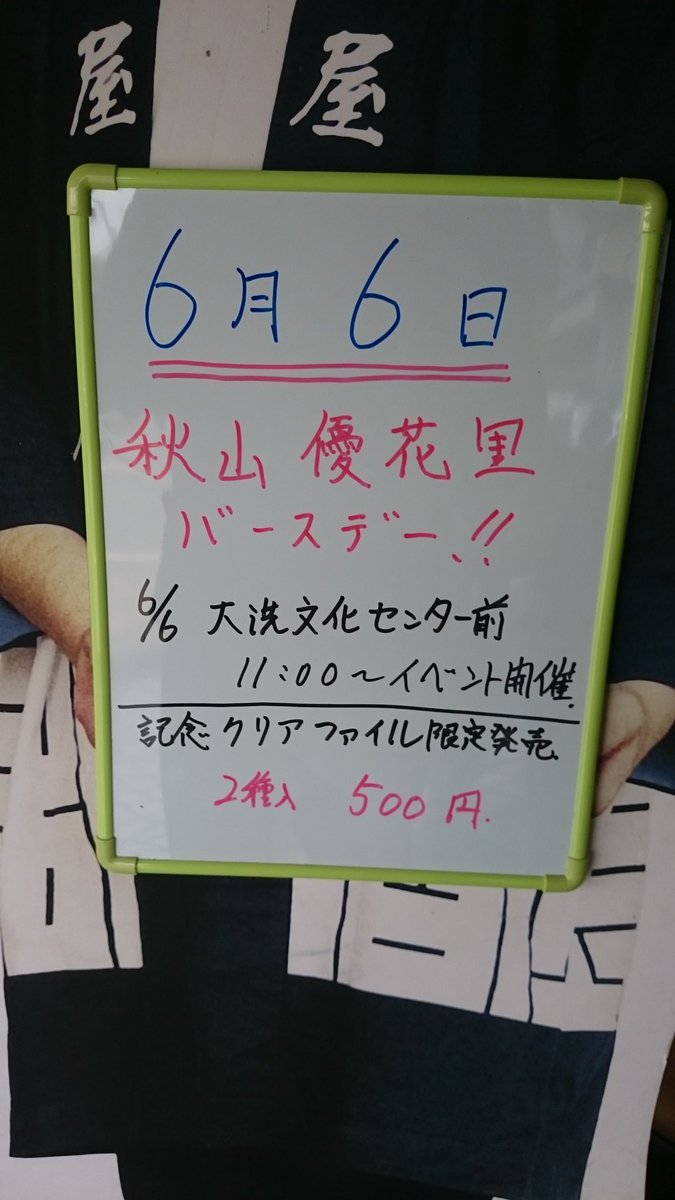 屋 屋
6月6日
秋山優花里
バースデー!!
6/6 大洗文化センター前
11:00～イベント開催.
記念クリアファイル限定発売.
2種入 500円.